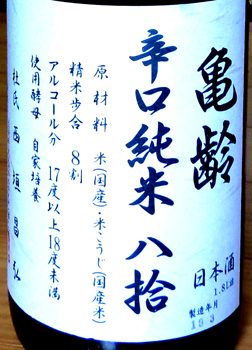 亀齢
辛口純米 八拾
日本酒
1.8L詰
製造年月
19 3
原材料 米(国産)・米こうじ(国産米)
精米歩合 8割
アルコール分 17度以上18度未満
使用酵母 自家培養
杜氏 西垣昌弘